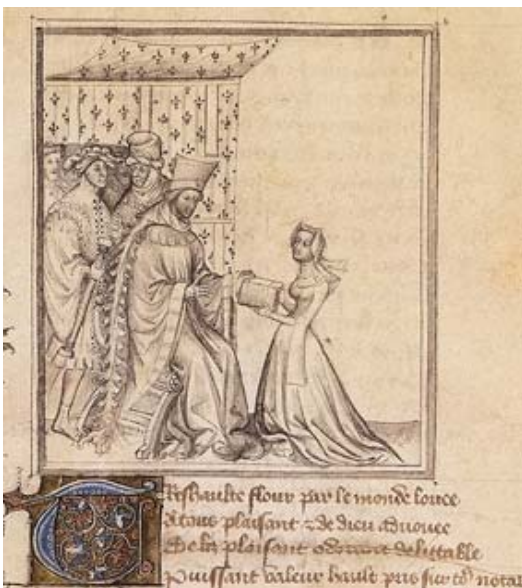 Treshaulte flour par le monde louee
A tous plaisant ⁊ de dieu aduouee
De lis plaisant odorant delittable
Puissant valeur hault pris sur